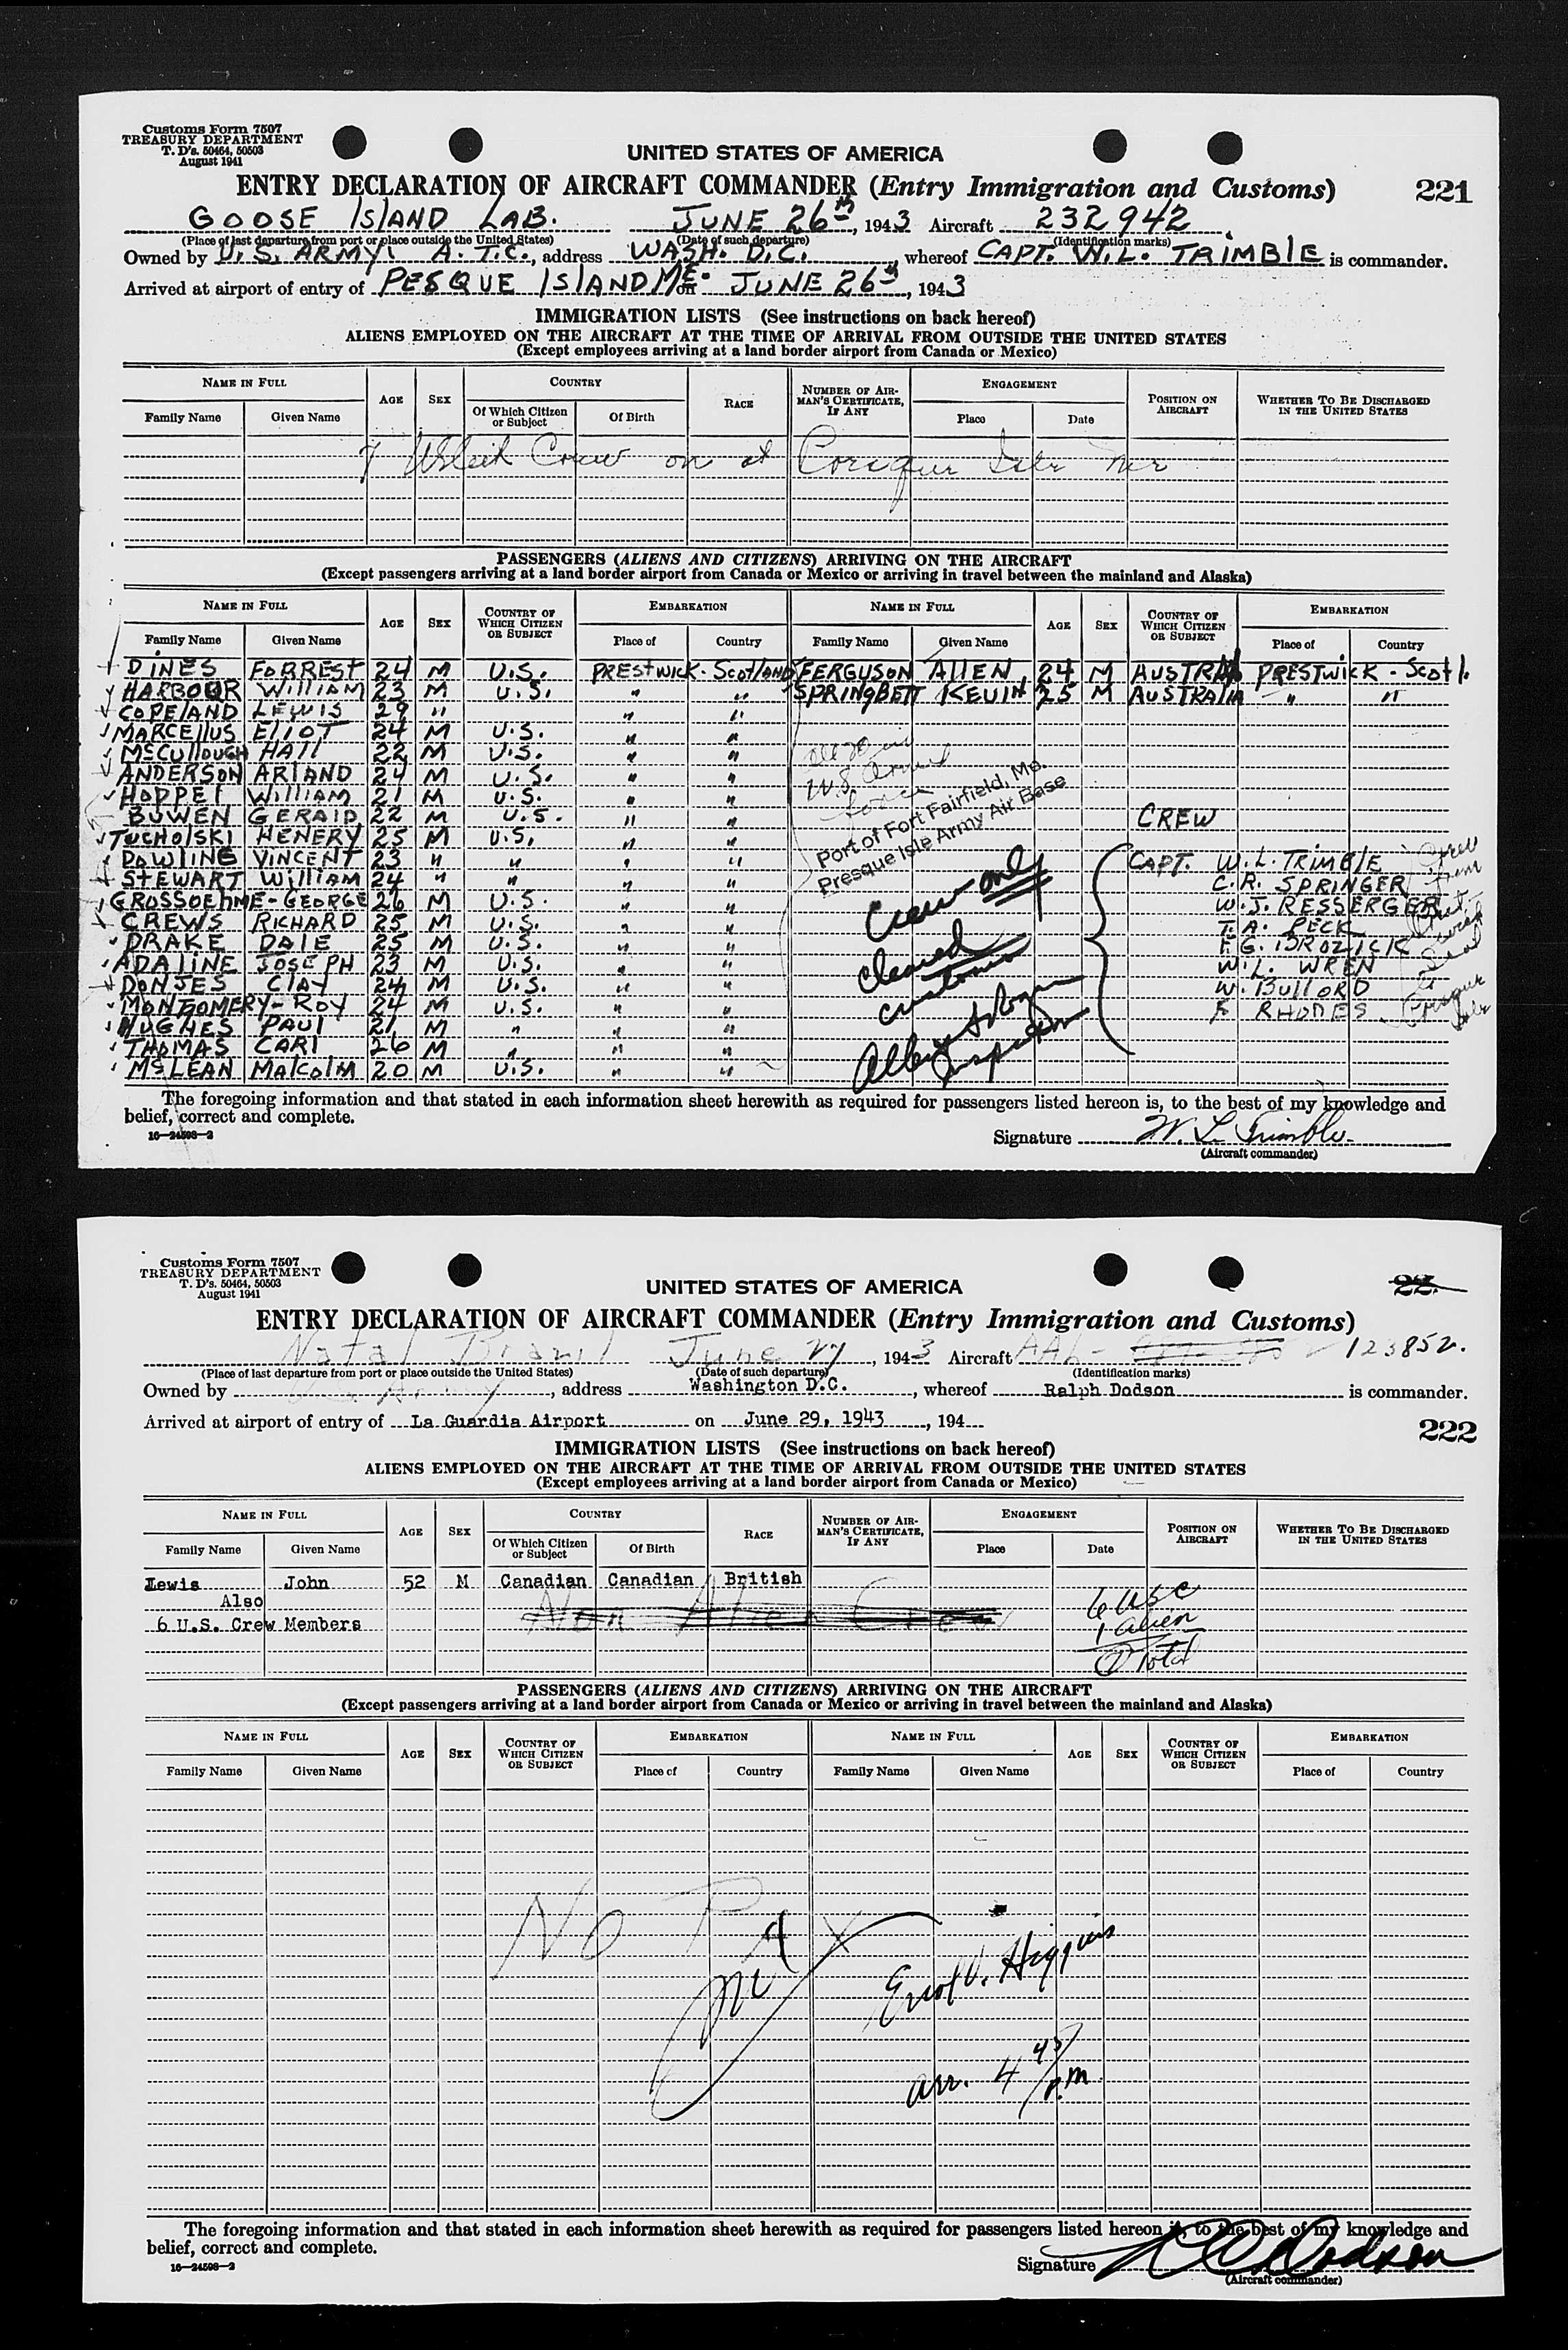 Customs Form 7507
TREASURY DEPARTMENT
T. D's. 50464, 50503
August 1941
UNITED STATES OF AMERICA
ENTRY DECLARATION OF AIRCRAFT COMMANDER (Entry Immigration and Customs) 221
GOOSE ISLAND LAB. JUNE 26th, 1943 Aircraft 232942
(Place of last departure from port or place outside the United States) (Date of such departure) (Identification marks)
Owned by U.S. ARMY. A.T.C., address WASH. D.C., whereof CAPT. W.L. TRIMBLE is commander.
Arrived at airport of entry of PESQUE ISLAND ME. on JUNE 26th, 1943
IMMIGRATION LISTS (See instructions on back hereof)
ALIENS EMPLOYED ON THE AIRCRAFT AT THE TIME OF ARRIVAL FROM OUTSIDE THE UNITED STATES
(Except employees arriving at a land border airport from Canada or Mexico)
NAME IN FULL AGE SEX COUNTRY RACE NUMBER OF AIRMAN'S CERTIFICATE, IF ANY ENGAGEMENT POSITION ON AIRCRAFT WHETHER TO BE DISCHARGED IN THE UNITED STATES
Family Name Given Name Of Which Citizen or Subject Of Birth Place Date
Crew on at
PASSENGERS (ALIENS AND CITIZENS) ARRIVING ON THE AIRCRAFT
(Except passengers arriving at a land border airport from Canada or Mexico or arriving in travel between the mainland and Alaska)
NAME IN FULL AGE SEX COUNTRY OF WHICH CITIZEN OR SUBJECT EMBARKATION NAME IN FULL AGE SEX COUNTRY OF WHICH CITIZEN OR SUBJECT EMBARKATION
Family Name Given Name Place of Country Family Name Given Name Place of Country
DINES FORREST 24 M U.S. PRESTWICK - SCOTLAND FERGUSON ALLEN 24 M AUSTRA PRESTWICK - Scotl.
HARBOUR WILLIAM 23 M U.S. " " SPRINGBETT KEVIN 25 M AUSTRALIA " "
COPELAND LEWIS 29 " " "
MARCELLUS ELIOT 24 M U.S. " "
McCULLOUGH HALL 22 M U.S. " "
ANDERSON ARLAND 24 M U.S. " "
HOPPEL WILLIAM 21 M U.S. " "
BOWEN GERALD 22 M U.S. " " CREW
TUCHOLSKI HENERY 25 M U.S. " "
DOWLING VINCENT 23 " " " " CAPT. W.L. TRIMBLE
STEWART WILLIAM 24 " " " " C.R. SPRINGER
GROSSOEHME - GEORGE 26 M U.S. " " W.J. RESSERGER
CREWS RICHARD 25 M U.S. " " T.A. PECK
DRAKE DALE 25 M U.S. " " F.G. BROZICK
ADALINE JOSEPH 23 M U.S. " " W.L. WREN
DONJES CLAY 24 M U.S. " " W. BULLORD
MONTGOMERY - ROY 24 M U.S. " " F RHODES
HUGHES PAUL 21 M " " "
THOMAS CARL 26 M " " "
McLEAN MALCOLM 20 M U.S. " "
Port of Fort Fairfield, Me.
Presque Isle Army Air Base
Crew only
cleared
customs
Inspector
The foregoing information and that stated in each information sheet herewith as required for passengers listed hereon is, to the best of my knowledge and
belief, correct and complete.
16—24598-2
Signature W. L. Trimble
(Aircraft commander)
Customs Form 7507
TREASURY DEPARTMENT
T. D's. 50464, 50503
August 1941
UNITED STATES OF AMERICA
ENTRY DECLARATION OF AIRCRAFT COMMANDER (Entry Immigration and Customs)
Natal Brazil June 27, 1943 Aircraft AAL- 123852.
(Place of last departure from port or place outside the United States) (Date of such departure) (Identification marks)
Owned by U.S. Army, address Washington D.C., whereof Ralph Dodson is commander.
Arrived at airport of entry of La Guardia Airport on June 29, 1943, 194
222
IMMIGRATION LISTS (See instructions on back hereof)
ALIENS EMPLOYED ON THE AIRCRAFT AT THE TIME OF ARRIVAL FROM OUTSIDE THE UNITED STATES
(Except employees arriving at a land border airport from Canada or Mexico)
NAME IN FULL AGE SEX COUNTRY RACE NUMBER OF AIRMAN'S CERTIFICATE, IF ANY ENGAGEMENT POSITION ON AIRCRAFT WHETHER TO BE DISCHARGED IN THE UNITED STATES
Family Name Given Name Of Which Citizen or Subject Of Birth Place Date
Lewis John 52 M Canadian Canadian British
Also 6 USC
6 U.S. Crew Members Non Alien Crew 1 alien
7 Total
PASSENGERS (ALIENS AND CITIZENS) ARRIVING ON THE AIRCRAFT
(Except passengers arriving at a land border airport from Canada or Mexico or arriving in travel between the mainland and Alaska)
NAME IN FULL AGE SEX COUNTRY OF WHICH CITIZEN OR SUBJECT EMBARKATION NAME IN FULL AGE SEX COUNTRY OF WHICH CITIZEN OR SUBJECT EMBARKATION
Family Name Given Name Place of Country Family Name Given Name Place of Country
No
Higgins
arr. 4 45 p.m.
The foregoing information and that stated in each information sheet herewith as required for passengers listed hereon is, to the best of my knowledge and
belief, correct and complete.
16—24598-2
Signature Dodson
(Aircraft commander)